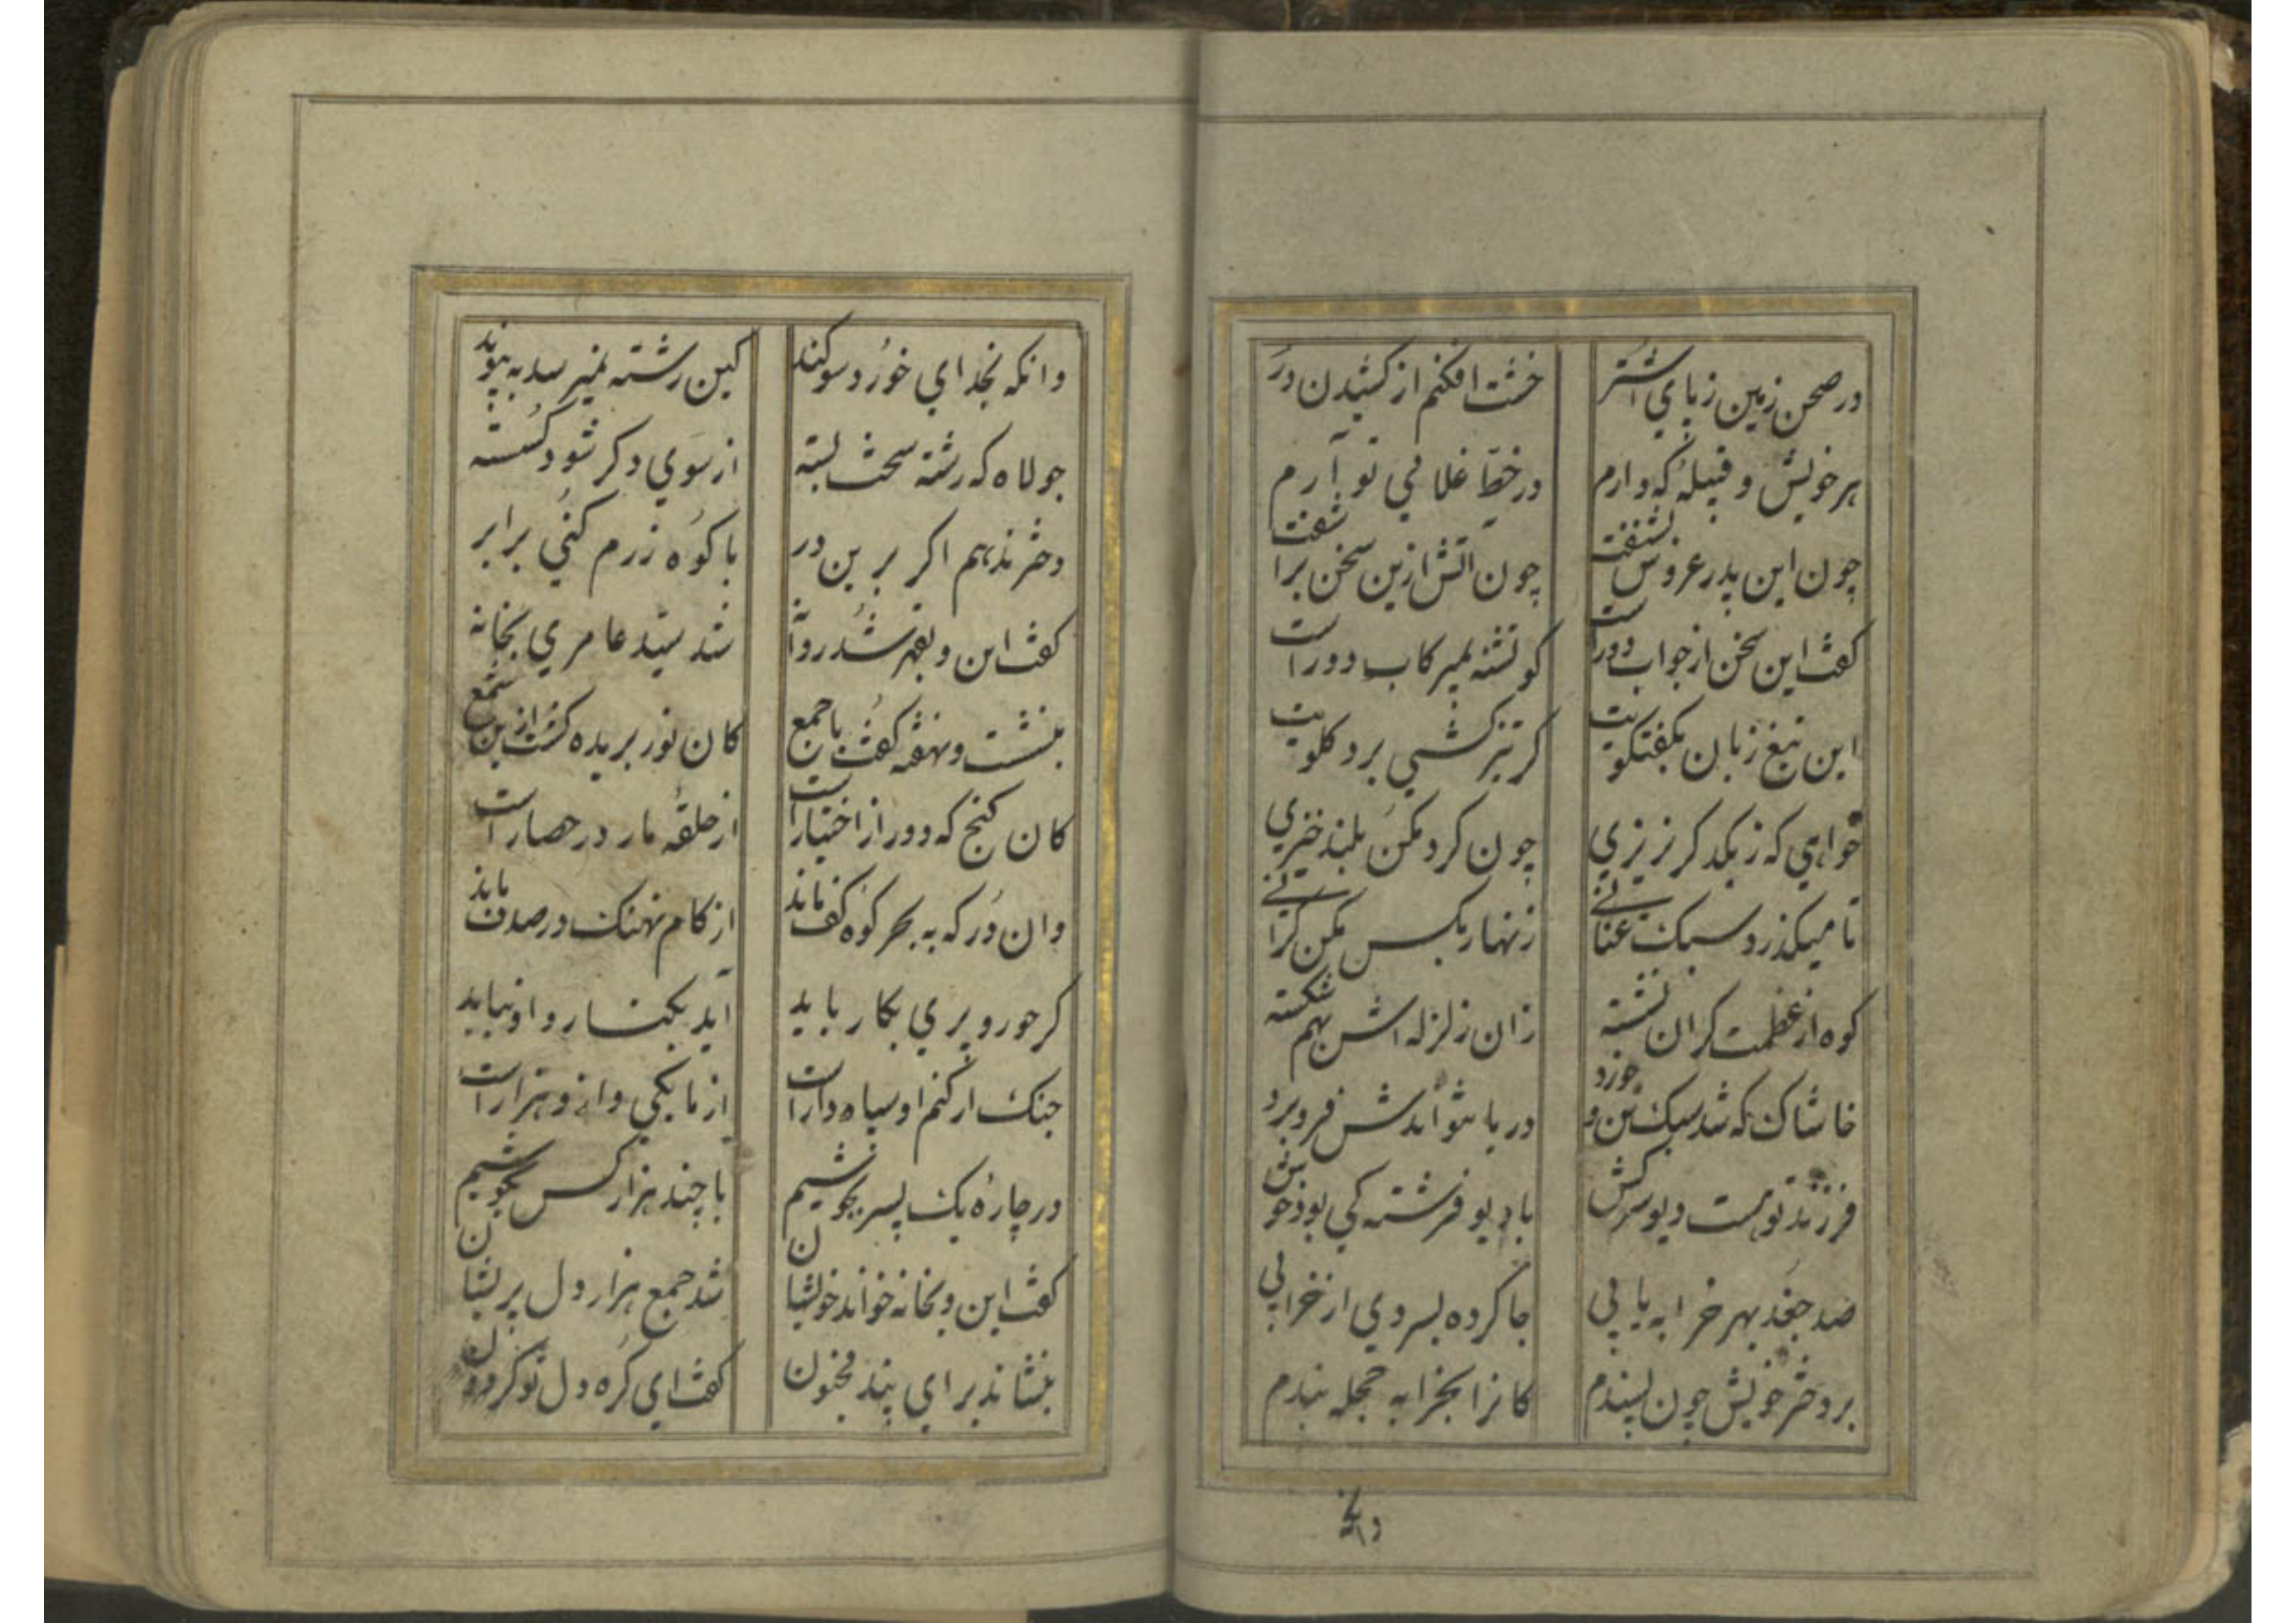 در صحن زمین زپای اشتر خشت افکنم از کشیدن در
هر خویش و قبیله که دارم در خط غلامی تو آرم
چون این پدر عروس بشنفت چون اتش ازین سخن براشفت
کفت این سخن از جواب دوراست کو تشنه بمیر کاب دوراست
این تیغ زبان بکفتکویت کر تیز کشی برد کلویت
خواهی که زبکد کر نریزی چون کرد مکن بلند خیزی
تا میکذرد سبک عنانی زنهار بکس مکن کرانی
کوه از عظمت کران نشسته زان زلزله اش بهم شکسته
خاشاک که شد سبک تن و خورد دریا نتواندش فرو برد
فرزند توهست دیو سرکش با دیو فرشته کی بود خوش
صد جغد بهر خرابه یابی جا کرده بسر دی از خرابی
بر دختر خویش چون پسندم کانرا بخرابه حجله بندم
وانکه
وانکه بخدای خورد سوکند کین رشته نمیرسد به پیوند
جولاه که رشته سخت بسته از سوی دکر شود کسسته
دختر ندهم اکر برین در با کوه زرم کنی برابر
کفت این و بقهر شد روانه شد سید عامری بخانه
بنشست و نهفته کفت با جمع کان نور بریده کشت ازین شمع
کان کنج که دور از اختیاراست از حلقه مار در حصاراست
وان در که به بحر کوه کف ماند از کام نهنک در صدف ماند
کر حور و پری بکار باید آید بکنار و او نیاید
جنک ار کنم او سپاه داراست از ما یکی و ازو هزاراست
در چاره یک پسر بجوشیم با چند هزار کس بکوشیم
کفت این و بخانه خواند خویشان شد جمع هزار دل پریشان
بنشاند برای پند مجنون کفت ای کره دل تو کردون